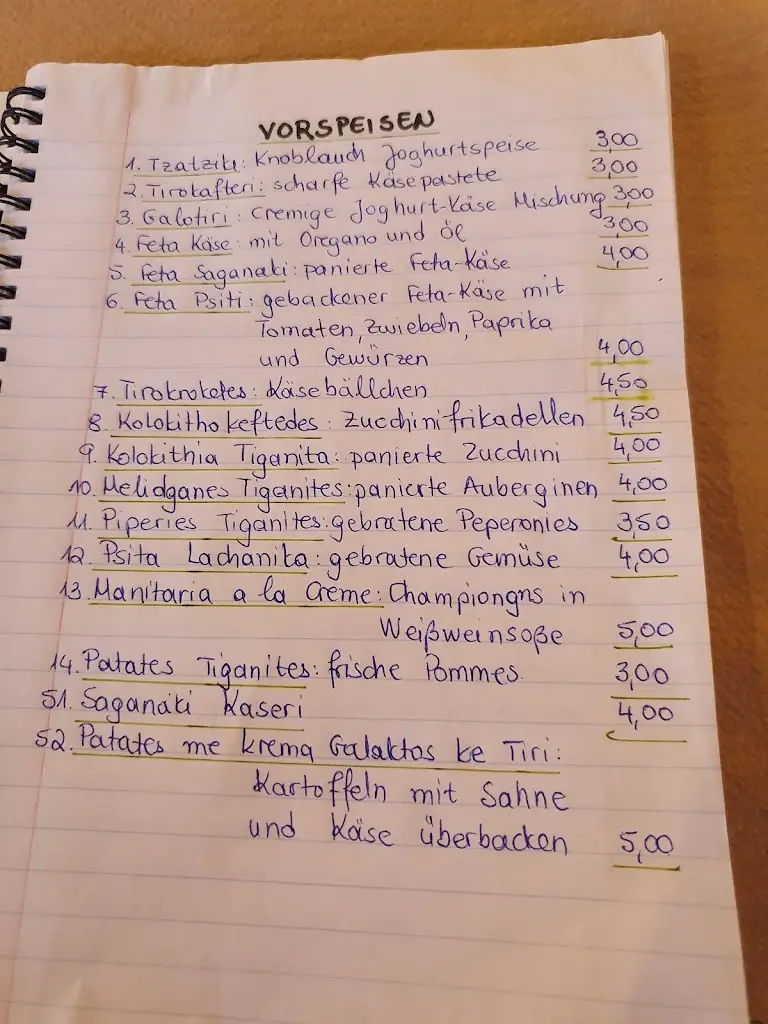 VORSPEISEN
1. Tzatziki: Knoblauch Joghurtspeise 3,00
2. Tirokafteri: scharfe Käsepastete 3,00
3. Galotiri: cremige Joghurt-Käse Mischung 3,00
4. Feta Käse: mit Oregano und Öl 3,00
5. Feta Saganaki: panierte Feta-Käse 4,00
6. Feta Psiti: gebackener Feta-Käse mit
Tomaten, Zwiebeln, Paprika
und Gewürzen 4,00
7. Tirokroketes: Käsebällchen 4,50
8. Kolokitho keftedes: Zucchinifrikadellen 4,50
9. Kolokithia Tiganita: panierte Zucchini 4,00
10. Melidganes Tiganites: panierte Auberginen 4,00
11. Piperies Tiganites: gebratene Peperonies 3,50
12. Psita Lachanika: gebratene Gemüse 4,00
13. Manitaria a la Creme: Championgns in
Weißweinsoße 5,00
14. Patates Tiganites: frische Pommes. 3,00
51. Saganaki Kaseri 4,00
52. Patates me krema Galaktos ke Tiri:
Kartoffeln mit Sahne
und Käse überbacken 5,00